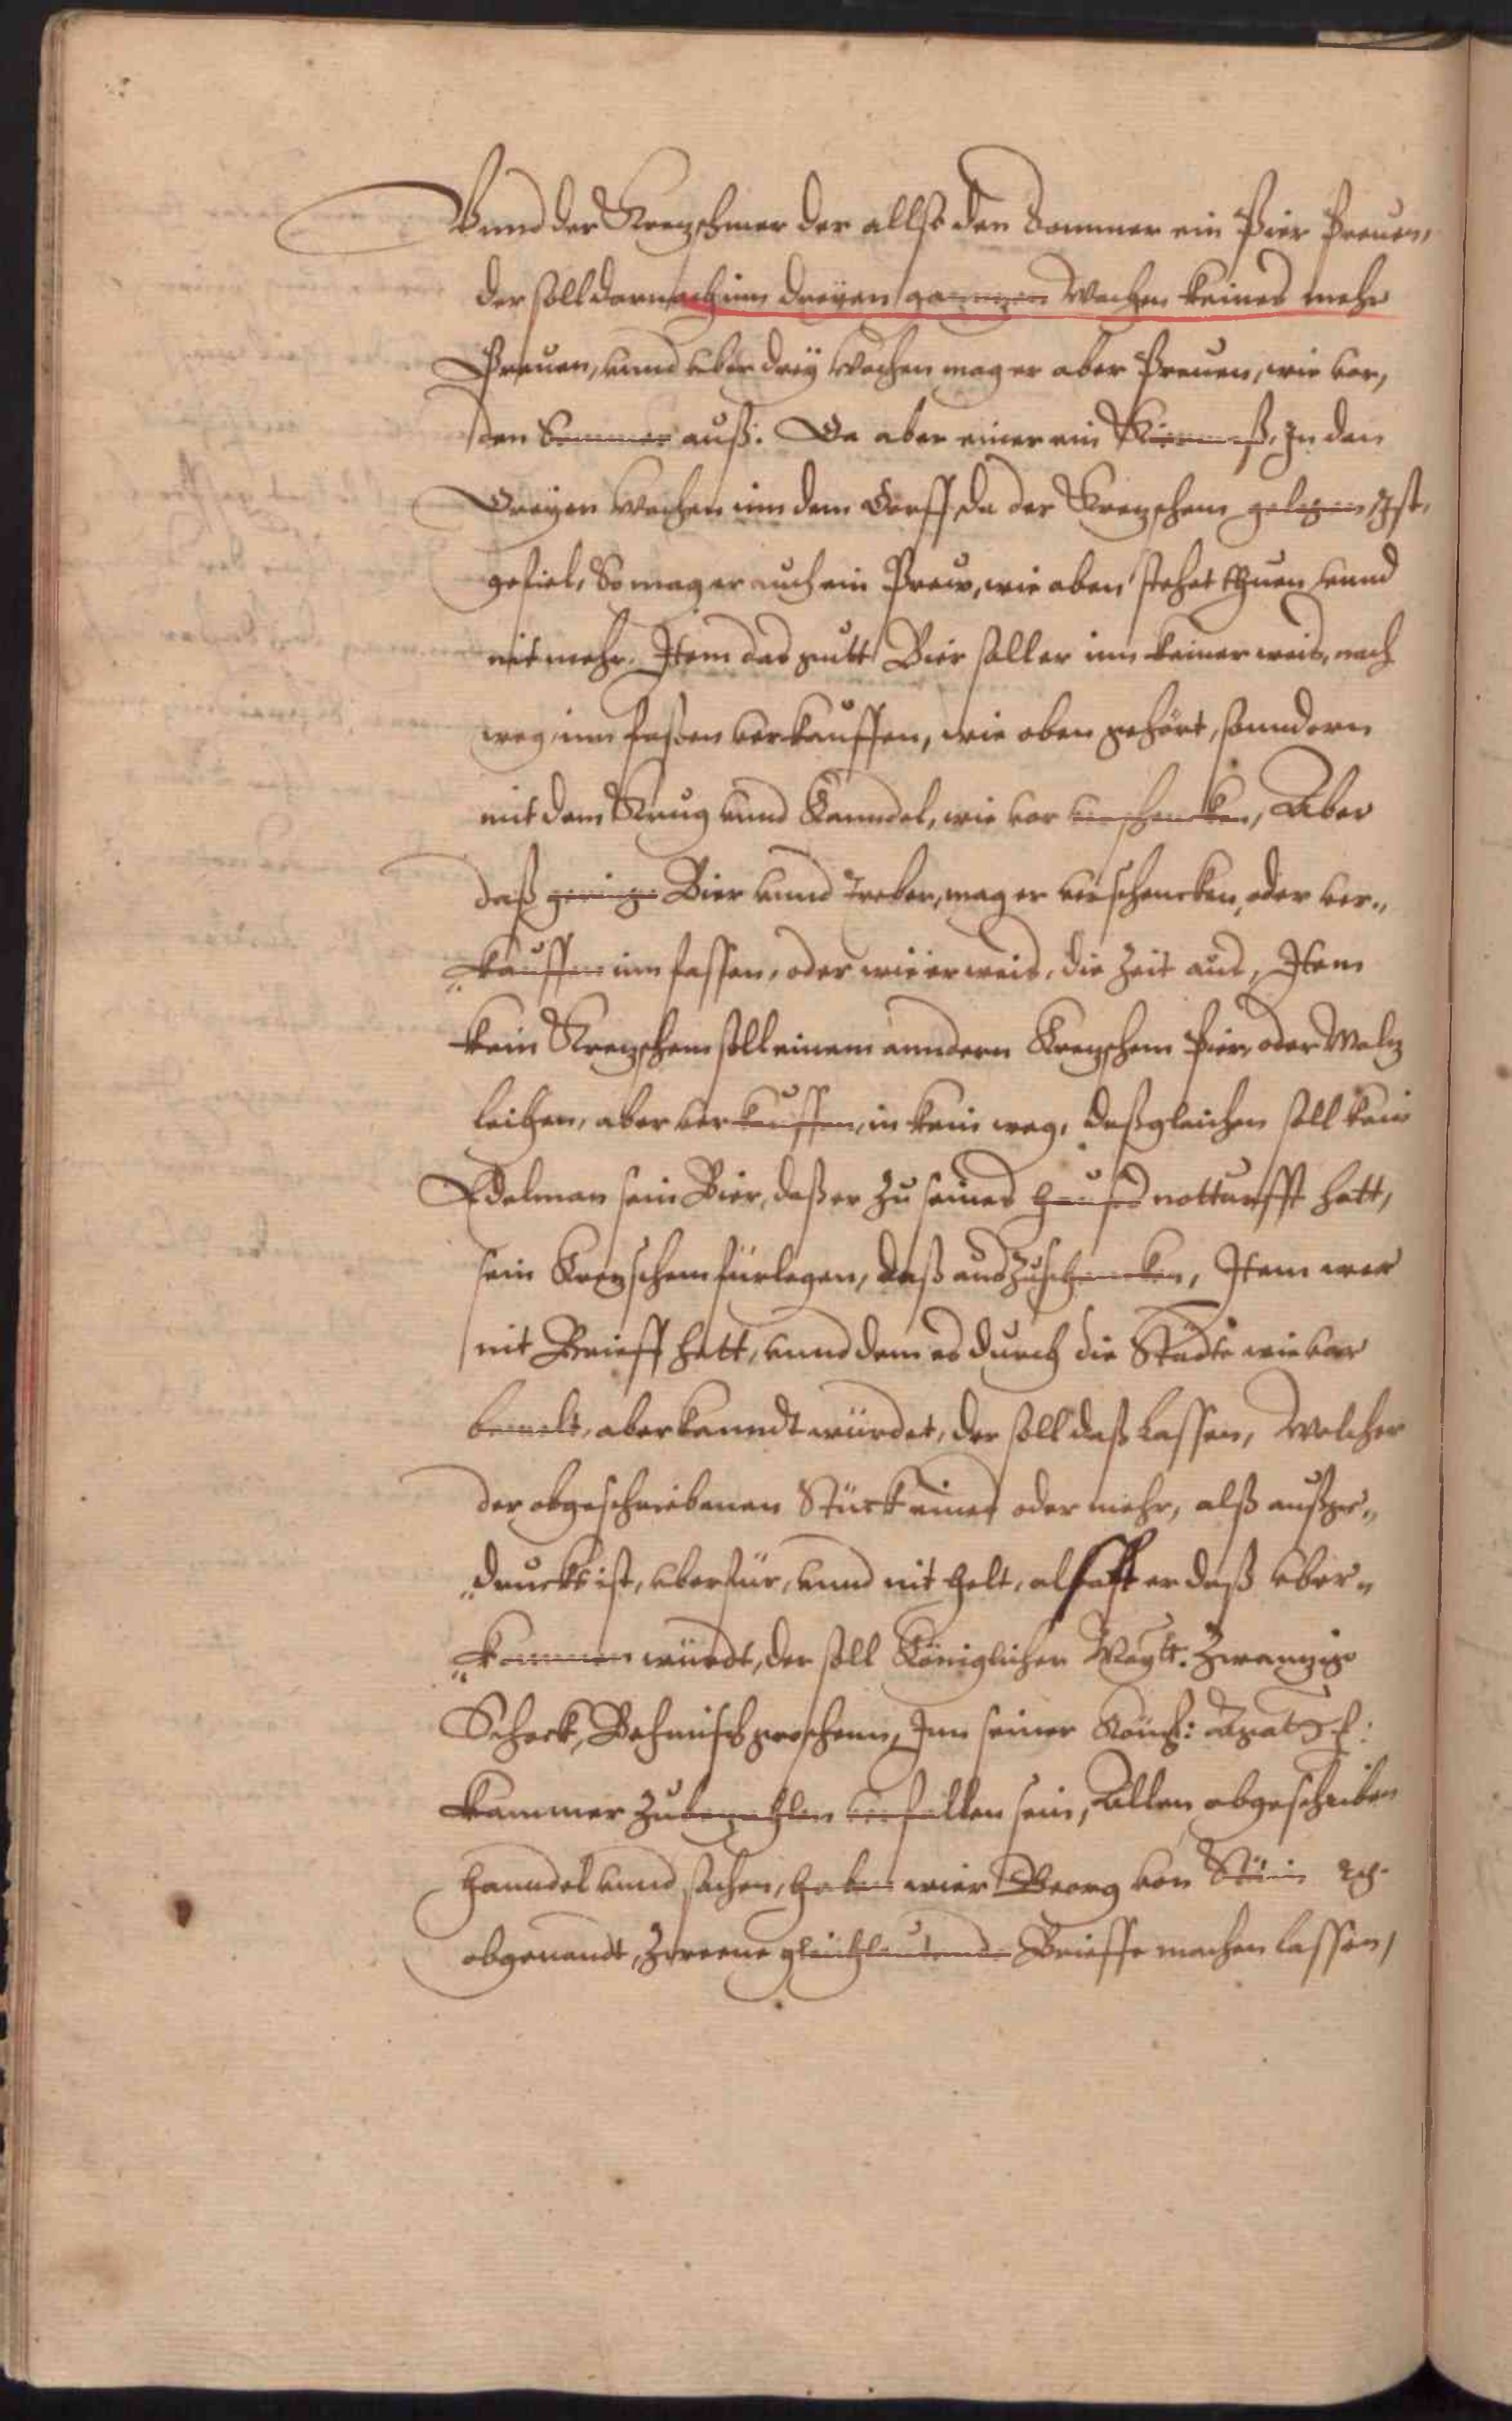 Vnnd der Kreczschmer der allso den Sommer ein Pier Preuen,
der soll darnach inn dreyen ganntzen Wochen keines mehr
Preuen, vnnd vber drey Wochen mag er aber Preuen, wie vor,
den Sommer auß: Da aber einer ein Kirmeß, In den
Dreyen Wochen inn dem Dorff, da der Kreczschem gelegen Ist,
gefiel, So mag er auch ein Prew, wie oben stehet thuen vnnd
nit mehr. Item das gutt Bier soll er inn keiner weis, noch
weg inn fassen verkauffen, wie oben gehört, sonndern
mit dem Krug vnnd Kanndel, wie vor verschencken, Aber
daß geringe Bier vnnd Treber, mag er verschencken, oder ver„
„kauffen inn fassen, oder wie er weis, die Zeit aus, Item
kein Kreczschem soll einem anndern Kreczschem Pier, oder Malz
leihen, aber verkauffen, in kein weg, deßgleichen soll kein
Edelman sein Bier, daß er zu seines hauses notturfft hatt,
sein Kreczschem fürlegen, daß auszuschencken, Item wer
nit Brieff hatt, vnnd dem es durch die Städte wie vor
bemelt, aberkanndt würdet, der soll daß Lassen, Welcher
der obgeschriebenen Stück eines oder mehr, alß außge„
„druckt ist, vberfür, vnnd nit helt, alsofft er daß vber„
„kommen würdt, der soll Königlicher Maytt. Zwanzig
Schock, Behmisch groschenn, Inn seiner Köni:
Kammer zubezahlen verfallen sein, Allen abgeschrieben
Hanndel vnnd sachen, haben wier Georg von Stein
obgenandt, Zweene gleichlautende Brieffe machen lassen,